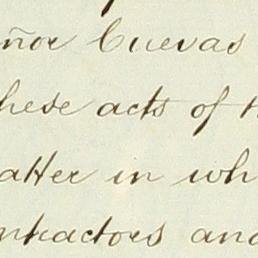 ñor Cuevas
hese acts of t
atter in wh
ntractors and